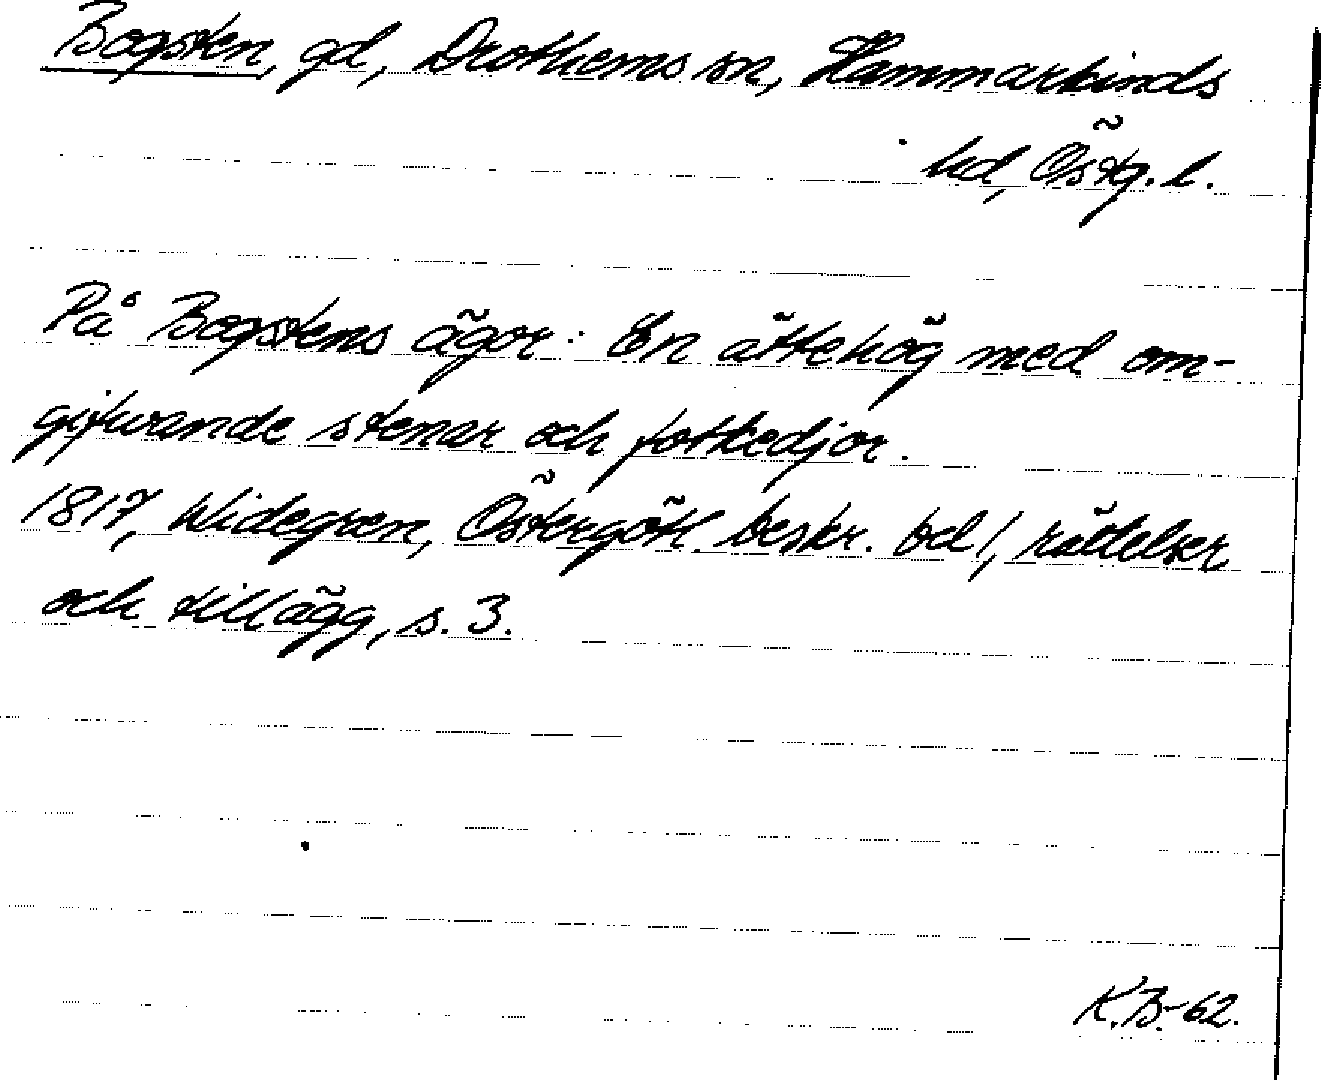 Bogsten, gd, Drothems sn, Hammarkinds
hd, Östg. l.
På Bogstens ägor: En ättehög med om-
gifwande stenar och fotkedjor.
1817, Widegren, Östergötl. beskr. bd 1, rättelser
och tillägg, s. 3.
K.B.-62.